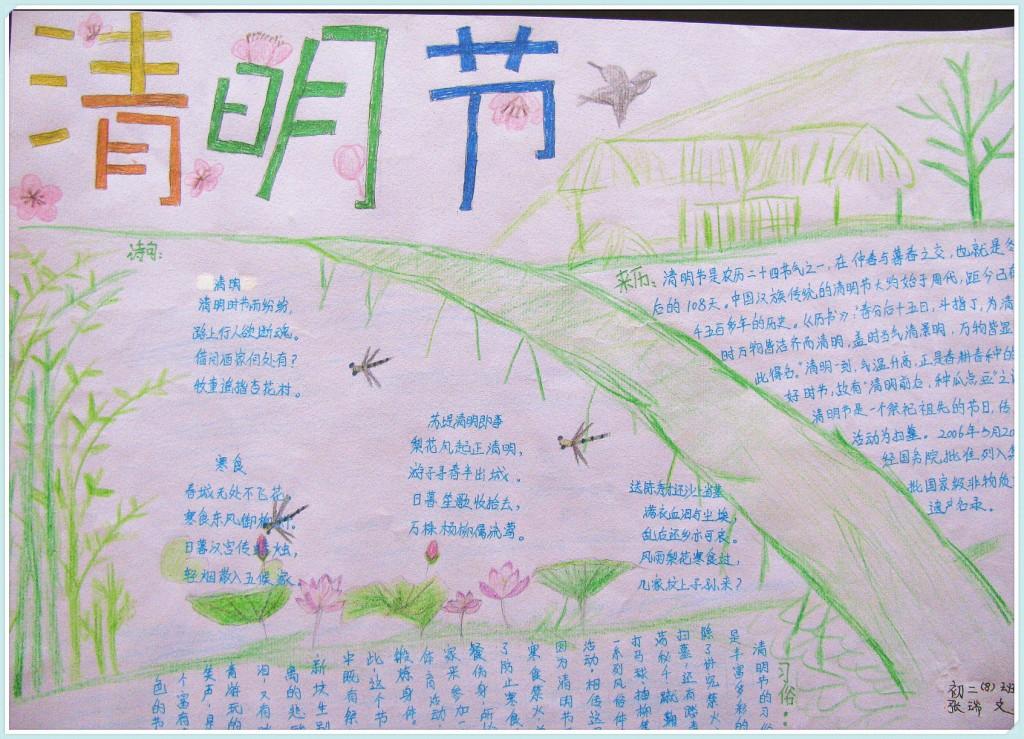 清明节
诗句:
清明
清明时节雨纷纷,
路上行人欲断魂。
借问酒家何处有?
牧童遥指杏花村。
寒食
春城无处不飞花
寒食东风御柳斜。
日暮汉宫传蜡烛,
轻烟散入五侯家
苏堤清明即事
梨花风起正清明,
游子寻春半出城。
日暮笙歌收拾去,
万株杨柳属流莺。
满衣血泪与尘埃,
乱后还乡亦可哀。
风雨梨花寒食过,
几家坟上子孙来?
来历:清明节是农历二十四节气之一,在仲春与暮春之交,也就是冬
后的108天。中国汉族传统的清明节大约始于周代,距今已有
千五百多年的历史。《历书》:"春分后十五日,斗指丁,为清
时万物皆洁齐而清明,盖时当气清景明,万物皆显
此得名。"清明一到,气温升高,正是春耕春种的
好时节,故有"清明前后,种瓜点豆"之
清明节是一个祭祀祖先的节日,传
活动为扫墓。2006年5月20
经国务院批准列入第
批国家级非物质
遗产名录。
习俗:
清明节的习俗
是丰富多彩的
除了讲究禁火
扫墓,还有踏青
荡秋千、蹴鞠
打马球、插柳等
一系列风俗体
活动。相传这
因为清明节
寒食禁火,为
了防止寒食
餐伤身,所以
家来参加一
体育活动,
锻炼身体。
此,这个节
中既有祭
新坟生别
离的悲酸
泪,又有
青游玩的
笑声,是
个富有
色的节
初二(8)班
张瑞文